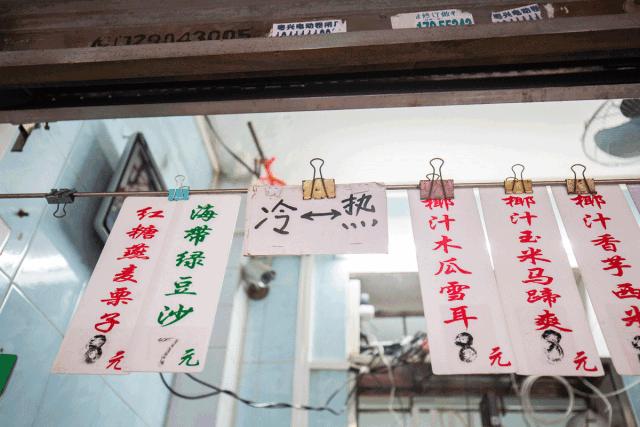 粤兴电动卷闸厂
红糖燕麦栗子
8元
海带绿豆沙
7元
冷↔热
椰汁木瓜雪耳
8元
椰汁玉米马蹄爽
8元
椰汁香芋西米